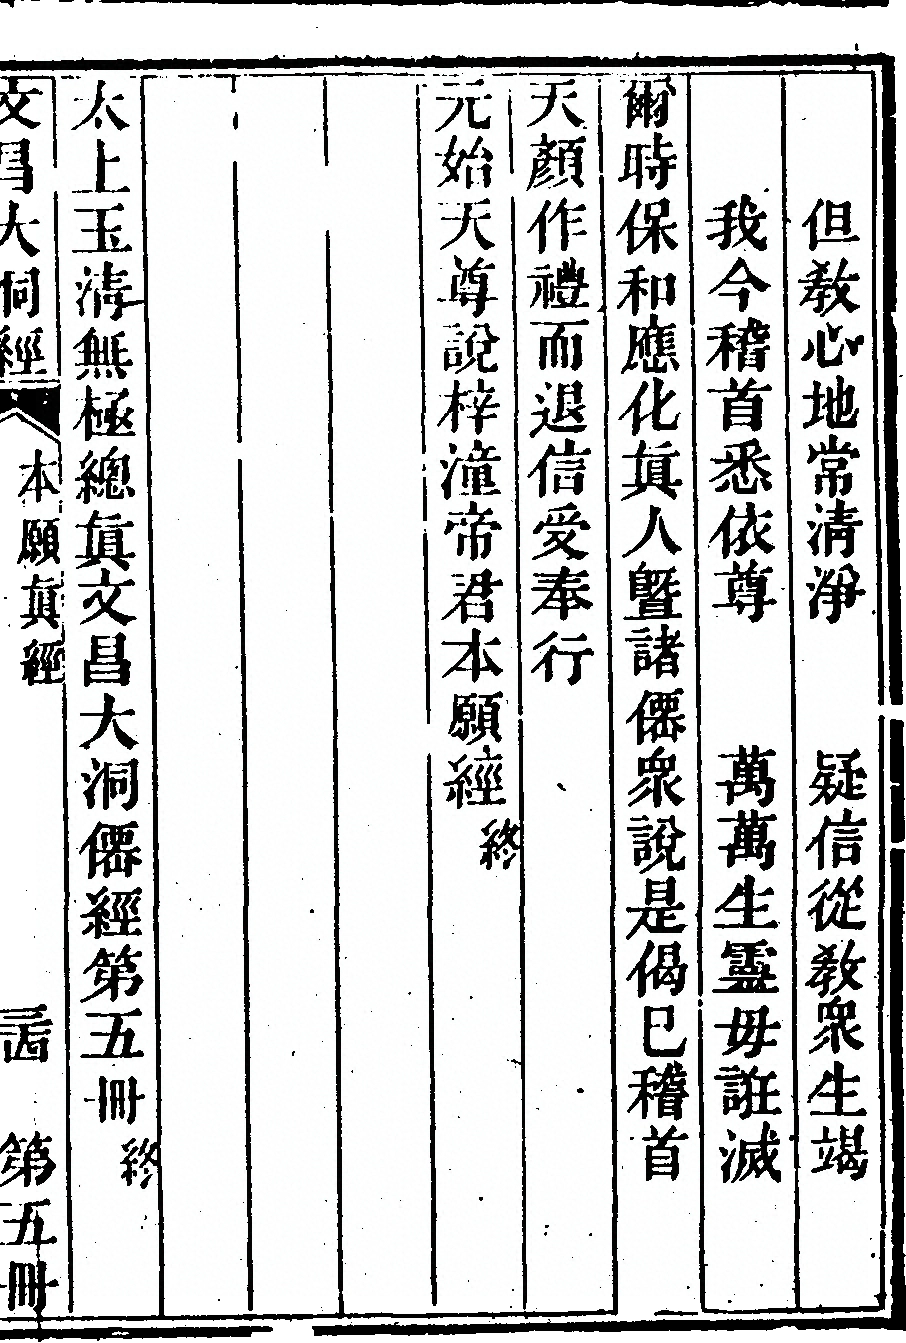 但教心地常清淨　疑信從教衆生竭
我今稽首悉依尊　萬萬生靈毋誑滅
爾時保和應化眞人曁諸僊衆說是偈已稽首
天顏作禮而退信受奉行
元始天尊說梓潼帝君本願經終
太上玉清無極總眞文昌大洞僊經第五冊終
文昌大洞經　本願眞經　三西　第五冊